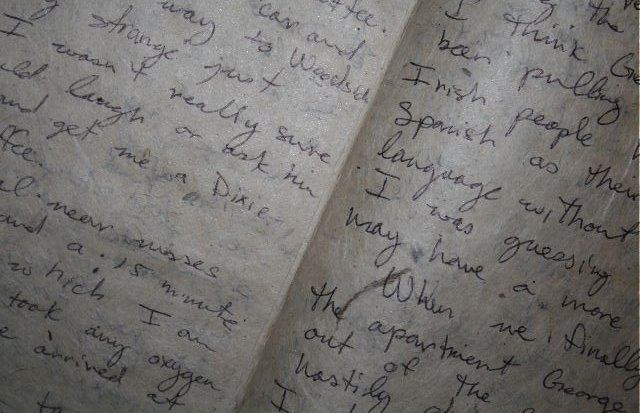 car and
way to Woodside
strange just
I wasn't really sure
laugh or ask him
and get me a Dixie
near misses
and a 15 minute
which I am
took any oxygen
arrived at
to
the
I think
been pulling
Irish people
Spanish as their
language without
I was guessing
may have a more
When we finally
the apartment George
out of the
hastily
I